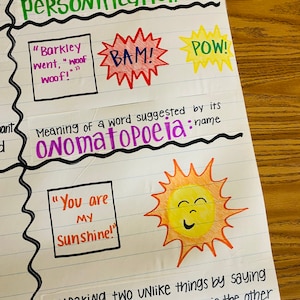 Personification
"Barkley
went, "woof
woof!"
BAM!
POW!
Meaning of a word suggested by its
onomatopoeia: name
"You are
my
Sunshine!"
two unlike things by saying
the other